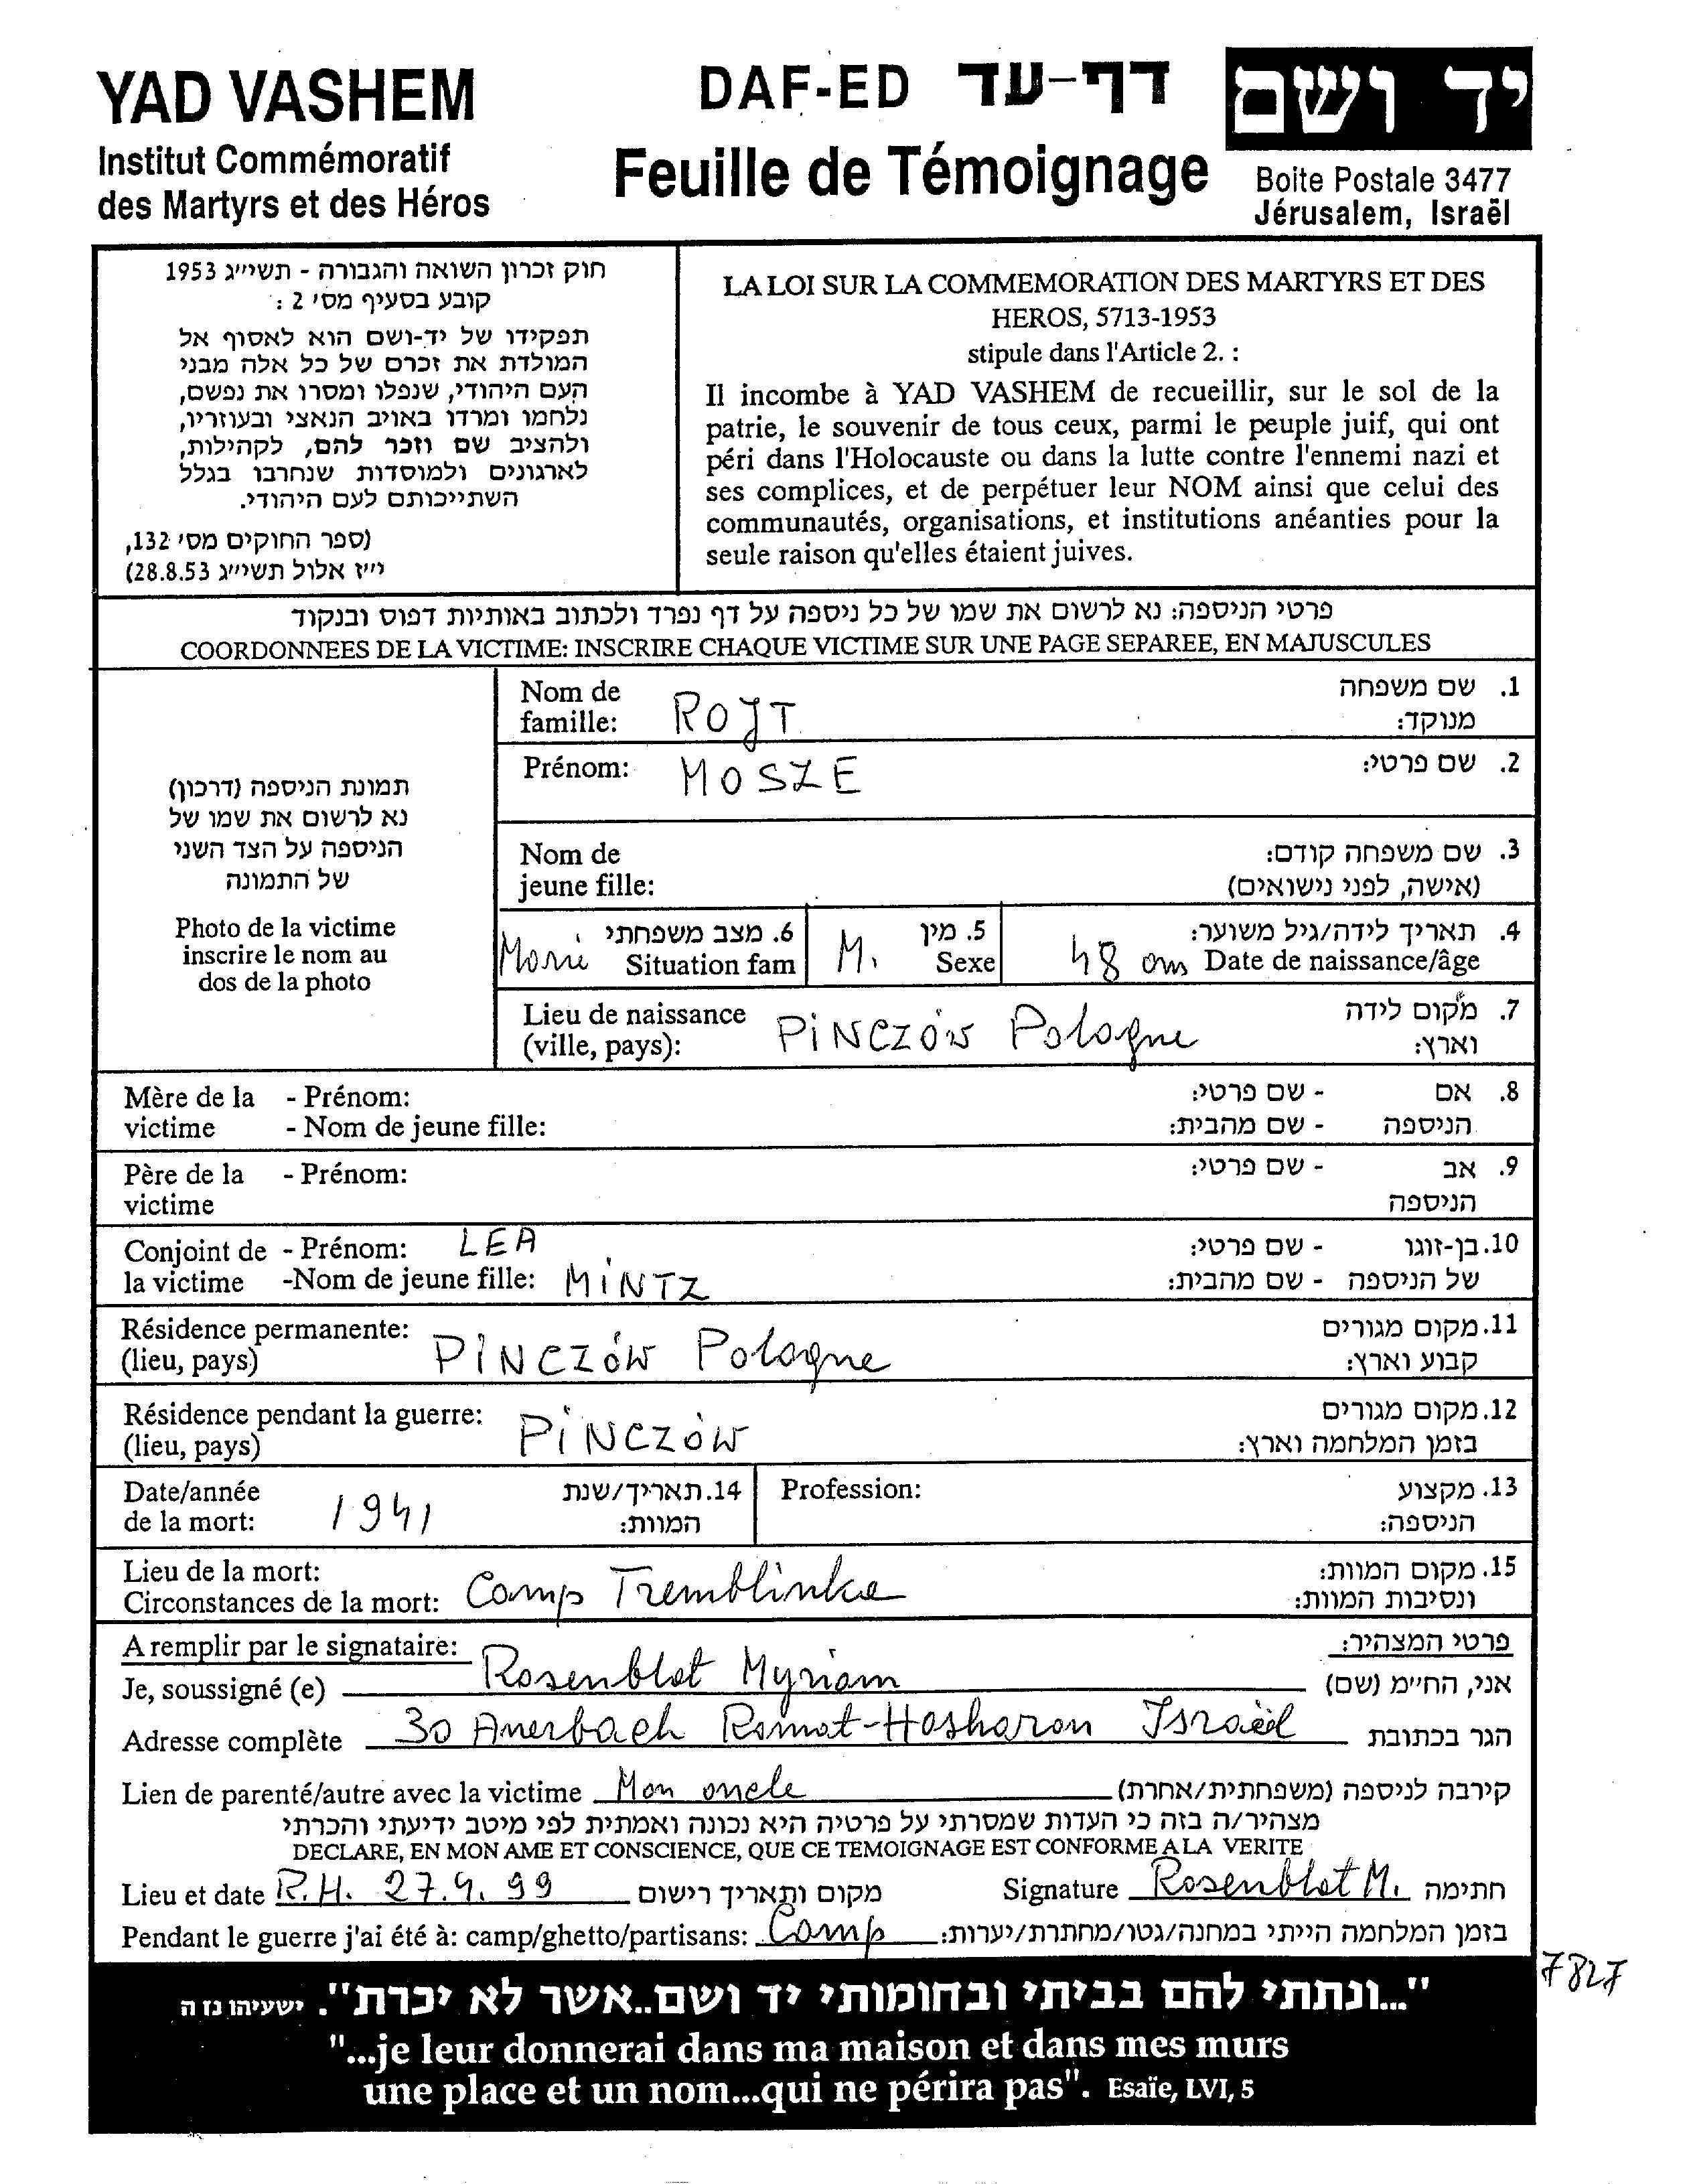 YAD VASHEM
Institut Commémoratif
des Martyrs et des Héros
DAF-ED דף-עד
Feuille de Témoignage
יד ושם
Boite Postale 3477
Jérusalem, Israël
חוק זכרון השואה והגבורה - תשי״ג 1953
קובע בסעיף מס׳ 2 :
תפקידו של יד-ושם הוא לאסוף אל
המולדת את זכרם של כל אלה מבני
העם היהודי, שנפלו ומסרו את נפשם,
נלחמו ומרדו באויב הנאצי ובעוזריו,
ולהציב שם וזכר להם, לקהילות,
לארגונים ולמוסדות שנחרבו בגלל
השתייכותם לעם היהודי.
(ספר החוקים מס׳ 132,
י״ז אלול תשי״ג 28.8.53)
LA LOI SUR LA COMMEMORATION DES MARTYRS ET DES
HEROS, 5713-1953
stipule dans l'Article 2. :
Il incombe à YAD VASHEM de recueillir, sur le sol de la
patrie, le souvenir de tous ceux, parmi le peuple juif, qui ont
péri dans l'Holocauste ou dans la lutte contre l'ennemi nazi et
ses complices, et de perpétuer leur NOM ainsi que celui des
communautés, organisations, et institutions anéanties pour la
seule raison qu'elles étaient juives.
פרטי הניספה: נא לרשום את שמו של כל ניספה על דף נפרד ולכתוב באותיות דפוס ובנקוד
COORDONNEES DE LA VICTIME: INSCRIRE CHAQUE VICTIME SUR UNE PAGE SEPAREE, EN MAJUSCULES
תמונת הניספה (דרכון)
נא לרשום את שמו של
הניספה על הצד השני
של התמונה
Photo de la victime
inscrire le nom au
dos de la photo
Nom de famille: ROJT 1. שם משפחה
מנוקד:
Prénom: MOSZE 2. שם פרטי:
Nom de 3. שם משפחה קודם:
jeune fille: (אישה, לפני נישואים)
Marié 6. מצב משפחתי M. 5. מין 48 ans 4. תאריך לידה/גיל משוער:
Situation fam Sexe Date de naissance/âge
Lieu de naissance PINCZÓW Pologne 7. מקום לידה
(ville, pays): וארץ:
Mère de la - Prénom: - שם פרטי: 8. אם
victime - Nom de jeune fille: - שם מהבית: הניספה
Père de la - Prénom: - שם פרטי: 9. אב
victime הניספה
Conjoint de - Prénom: LEA - שם פרטי: 10. בן-זוגו
la victime -Nom de jeune fille: MINTZ - שם מהבית: של הניספה
Résidence permanente: PINCZÓW Pologne 11. מקום מגורים
(lieu, pays) קבוע וארץ:
Résidence pendant la guerre: PINCZÓW 12. מקום מגורים
(lieu, pays) בזמן המלחמה וארץ:
Date/année 1941 14. תאריך/שנת Profession: 13. מקצוע
de la mort: המוות: הניספה:
Lieu de la mort: 15. מקום המוות:
Circonstances de la mort: Camp Tremblinka ונסיבות המוות:
A remplir par le signataire: פרטי המצהיר:
Je, soussigné (e) Rosenblat Myriam אני, החי״מ (שם)
Adresse complète 30 Auerbach Ramat-Hasharon Israël הגר בכתובת
Lien de parenté/autre avec la victime Mon oncle קירבה לניספה (משפחתית/אחרת)
מצהיר/ה בזה כי העדות שמסרתי על פרטיה היא נכונה ואמתית לפי מיטב ידיעתי והכרתי
DECLARE, EN MON AME ET CONSCIENCE, QUE CE TEMOIGNAGE EST CONFORME A LA VERITE
Lieu et date R.H. 27.4.99 מקום ותאריך רישום Signature Rosenblat M. חתימה
Pendant le guerre j'ai été à: camp/ghetto/partisans: Camp בזמן המלחמה הייתי במחנה/גטו/מחתרת/יערות:
7827
"...ונתתי להם בביתי ובחומותי יד ושם..אשר לא יכרת". ישעיהו נז ה
"...je leur donnerai dans ma maison et dans mes murs
une place et un nom...qui ne périra pas". Esaïe, LVI, 5